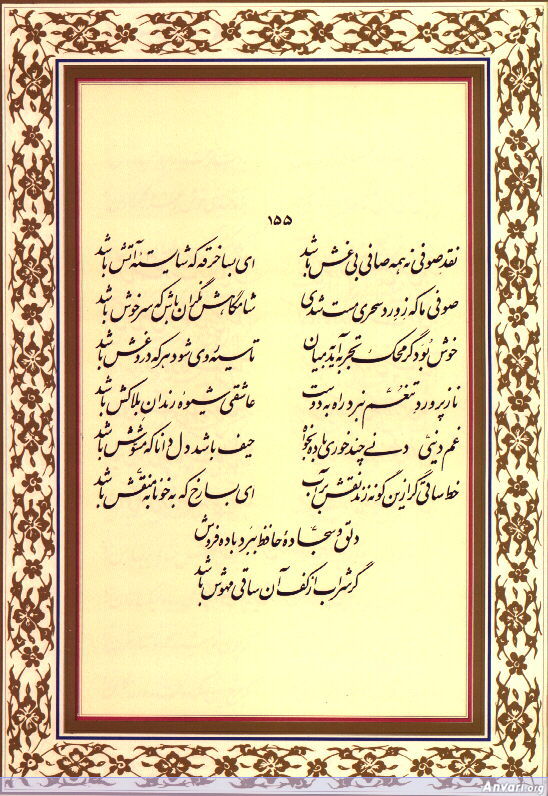 ۱۵۵
نقد صوفی نه همه صافی بی غش باشد ای بسا خرقه که شایستهٔ آتش باشد
صوفی ما که ز ورد سحری مست شدی شامگاهش نگران باش که سرخوش باشد
خوش بود گر محک تجربه آید بمیان تا سیه روی شود هر که درو غش باشد
ناز پرورد تنعم نبرد راه به دوست عاشقی شیوهٔ رندان بلاکش باشد
غم دنیی دنی چند خوری باده بخواه حیف باشد دل دانا که مشوش باشد
خط ساقی گر ازین گونه زند نقش بر آب ای بسا رخ که به خونابه منقش باشد
دلق و سجادهٔ حافظ ببرد باده فروش
گر شراب از کف آن ساقی مهوش باشد
Anvari.org